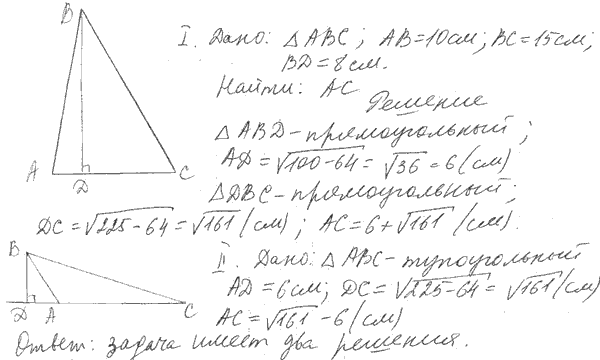 B
I. Дано: △ABC; AB=10см; BC=15см;
BD=8см.
Найти: AC
Решение
△ABD-прямоугольный;
AD=√100-64=√36=6(см)
A D C
△DBC-прямоугольный;
DC=√225-64=√161(см); AC=6+√161 (см).
B
II. Дано: △ABC-тупоугольный
AD=6см; DC=√225-64=√161(см)
D A C
AC=√161-6(см)
Ответ: задача имеет два решения.